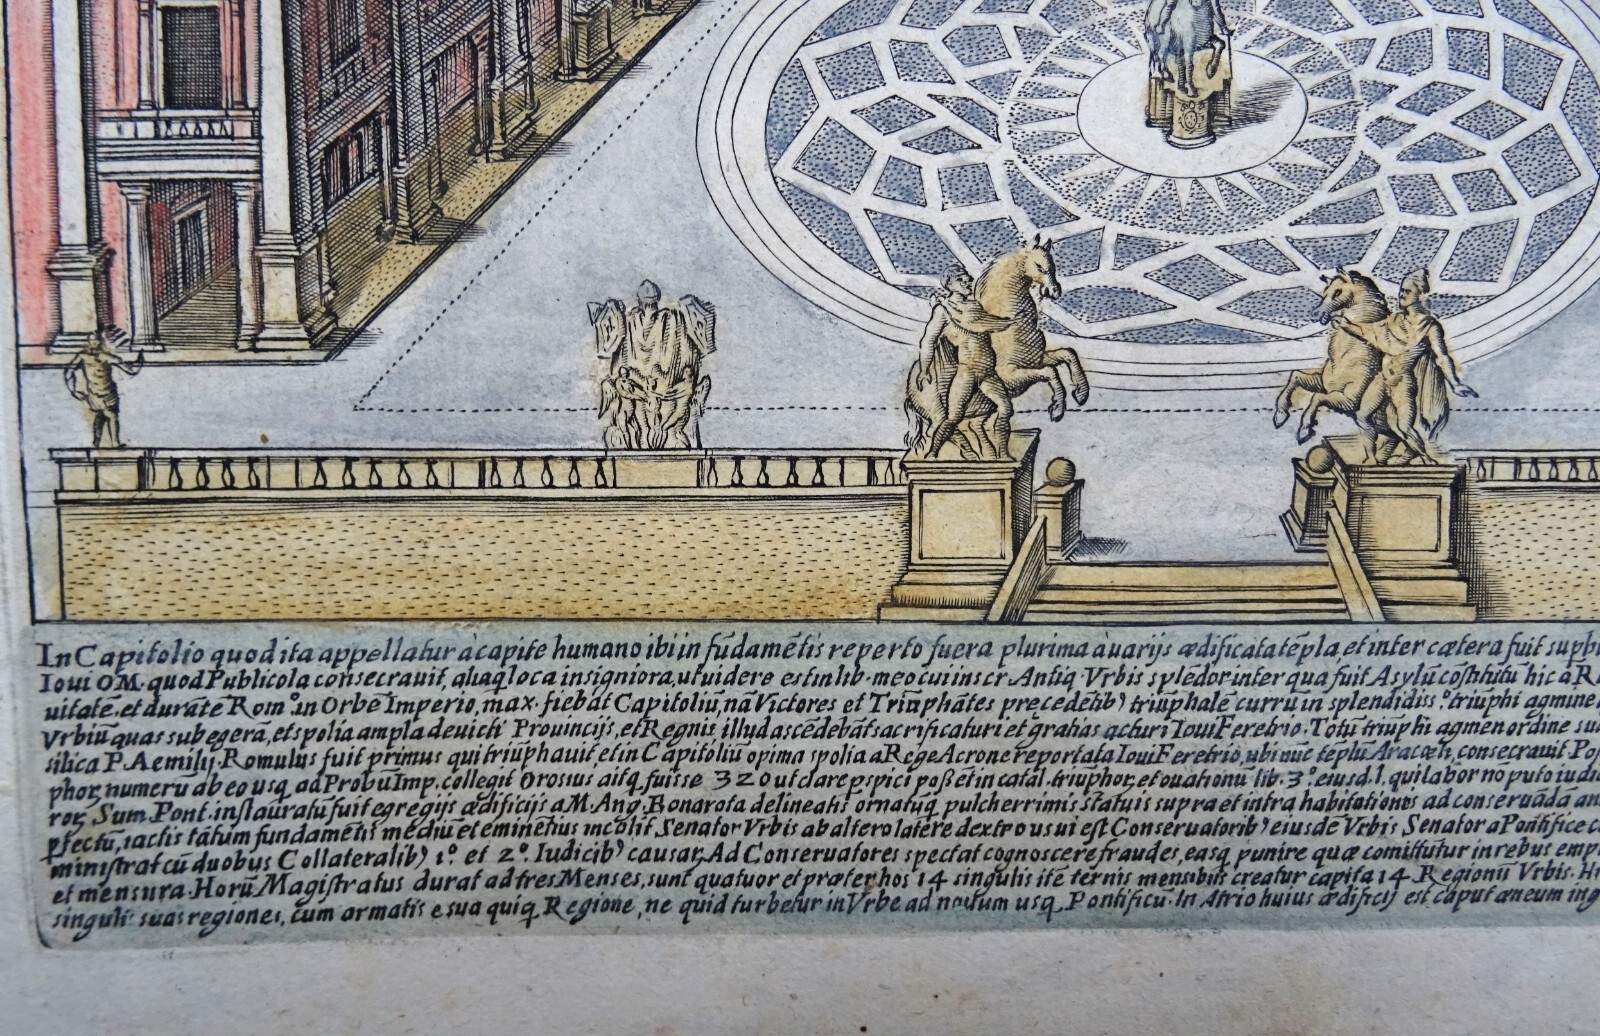 In Capitolio quod ita appellatur à capite humano ibi in fūdamētis reperto fuera plurima à uarijs ædificata tēpla, et inter cætera fuit
Ioui O.M. quod Publicola consecrauit, aliaq loca insigniora, ut uidere est in lib. meo cui inscr. Antiq. Vrbis splēdor inter qua fuit Asylū cōstitutū hic a R
uitate. et durāte Rom.º in Orbē Imperio, max. fiebāt Capitoliū, nā Victores et Triūphātes pręcedētib9 triūphalē currū in splendidiss.º triūphi agmine
Vrbiū quas subegerā, et spolia ampla deuicti Prouincijs, et Regnis, illud ascēdebāt sacrificaturi et gratias acturi Ioui Feretrio. Totū triūphi agmen ordine
silica P. Aemilij. Romulus fuit primus qui triūphauit, et in Capitoliū opima spolia a Rege Acrone reportata Ioui Feretrio, ubi nūc tēplū Aracæli, consecrauit. Po
phoꝝ numerū ab eo usq ad Probū Imp. collegit Orosius aitq fuisse 320 ut clare pspici poßet in catal. triuphoꝝ, et ouationū lib. 3º eiusd. l. qui labor no puto
roꝝ Sum. Pont. instauratū fuit egregijs ædificijs a M. Ang. Bonarota delineatis ornatuq pulcherrimis statuis supra et intra habitationes ad conseruādā an
pfectū, iactis tātum fundamētis mediū et eminētius incolit, Senator Vrbis ab altero latere dextro usui est Conseruatorib9 eiusdē Vrbis Senator a Pontifice
ministrat cū duobus Collateralib9 1º et 2º Iudicib9 causaꝝ. Ad Conseruatores spectat cognoscere fraudes, easq punire quæ comittutur in rebus
et mensura. Horū Magistratus durat ad tres Menses, sunt quatuor et præter hos 14 singulis itē ternis mensibus creatur capita 14 Regionū Vrbis. H
singulis suas regiones, cum armatis e sua quiq Regione, ne quid turbetur in Vrbe ad nutum usq Pontificū. In Atrio huius ædificij est caput æneum